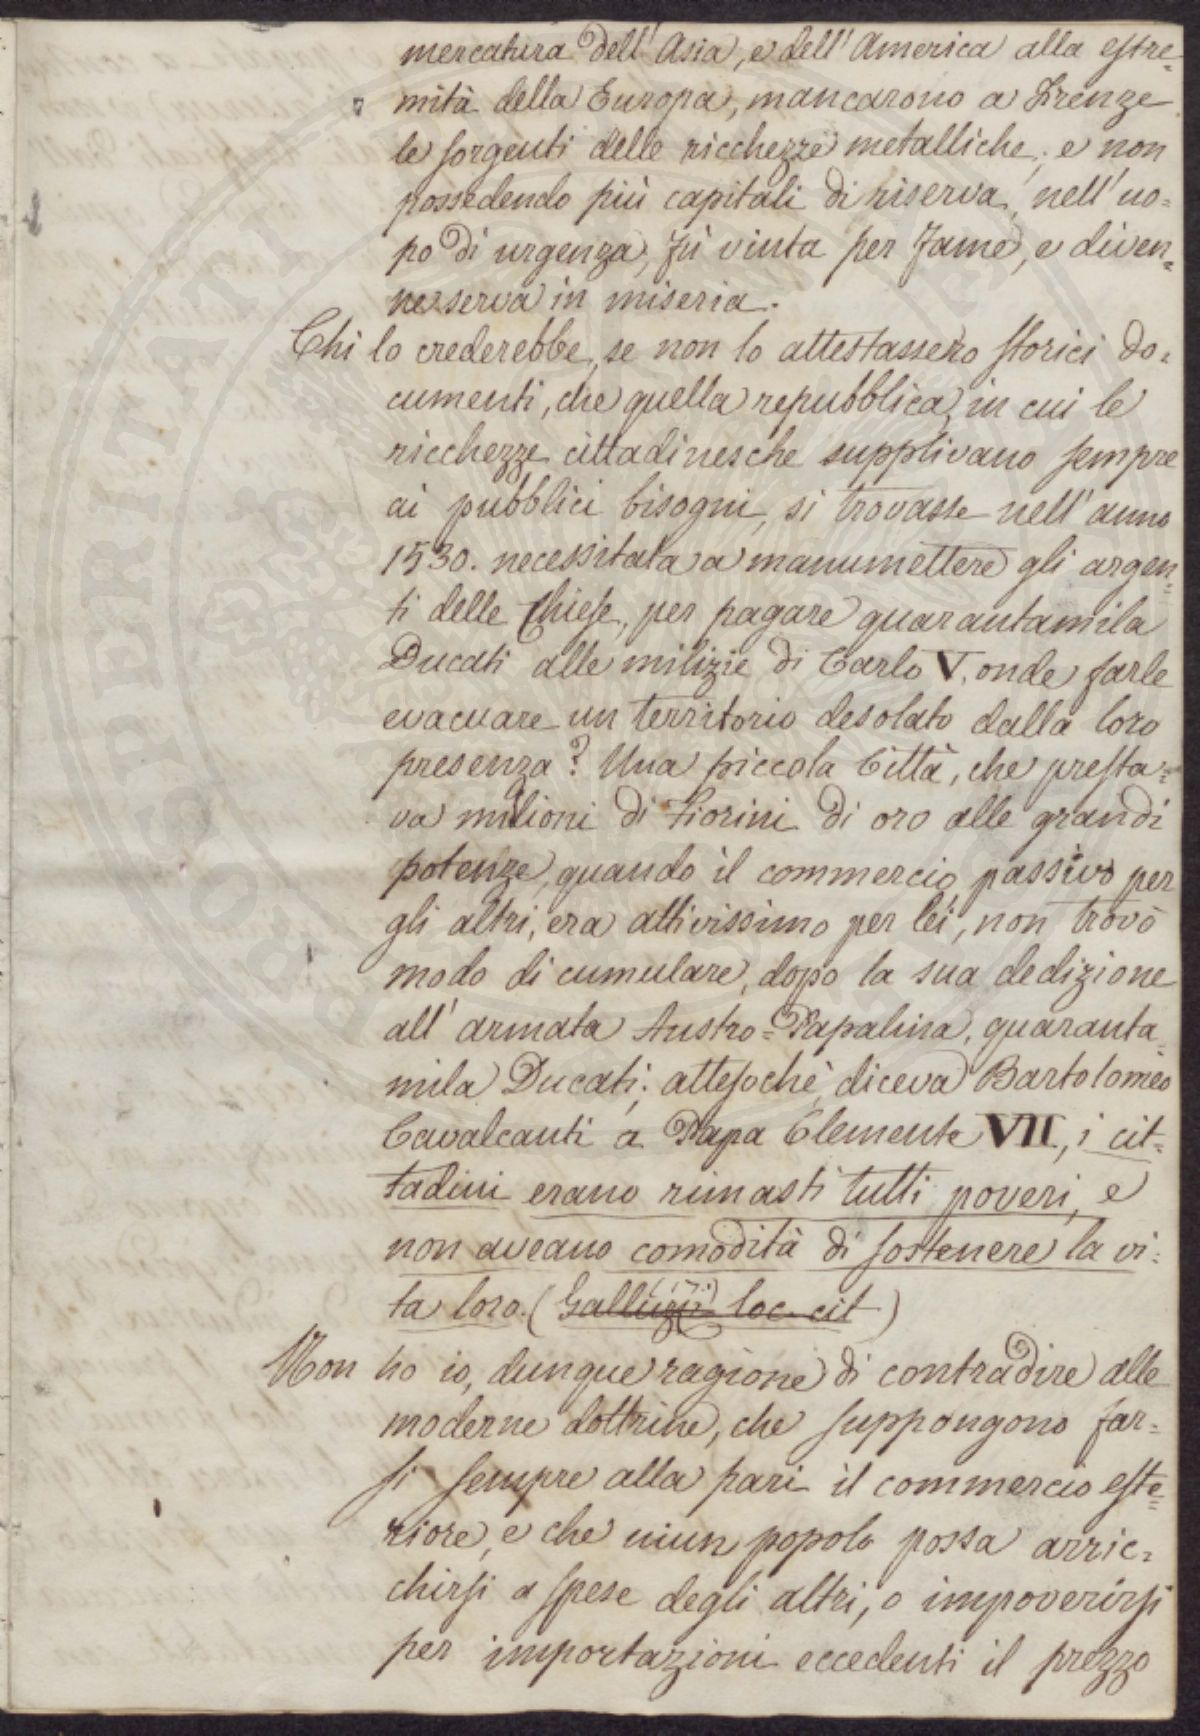 mercatura dell'Asia, e dell'America alla estre=
mità della Europa, mancarono a Firenze
le sorgenti delle ricchezze metalliche; e non
possedendo più capitali di riserva, nell'uo=
po di urgenza, fù vinta per fame, e diven=
ne serva in miseria.
Chi lo crederebbe, se non lo attestassero storici do=
cumenti, che quella repubblica, in cui le
ricchezze cittadinesche supplivano sempre
ai pubblici bisogni, si trovasse nell'anno
1530. necessitata a manumettere gli argen=
ti delle Chiese, per pagare quarantamila
Ducati alle milizie di Carlo V. onde farle
evacuare un territorio desolato dalla loro
presenza? Una piccola Città, che presta=
va milioni di Fiorini di oro alle grandi
potenze, quando il commercio passivo per
gli altri, era attivissimo per lei, non trovò
modo di cumulare, dopo la sua dedizione
all'armata Austro=Papalina, quaranta
mila Ducati; attesochè, diceva Bartolomeo
Cavalcanti a Papa Clemente VII, i cit=
tadini erano rimasti tutti poveri, e
non aveano comodità di sostenere la vi=
ta loro. (Galluzzi loc. cit)
Non ho io, dunque ragione di contradire alle
moderne dottrine, che suppongono far=
si sempre alla pari il commercio este=
riore, e che niun popolo possa arric=
chirsi a spese degli altri, o impoverirsi
per importazioni eccedenti il prezzo
PROSPERITATI